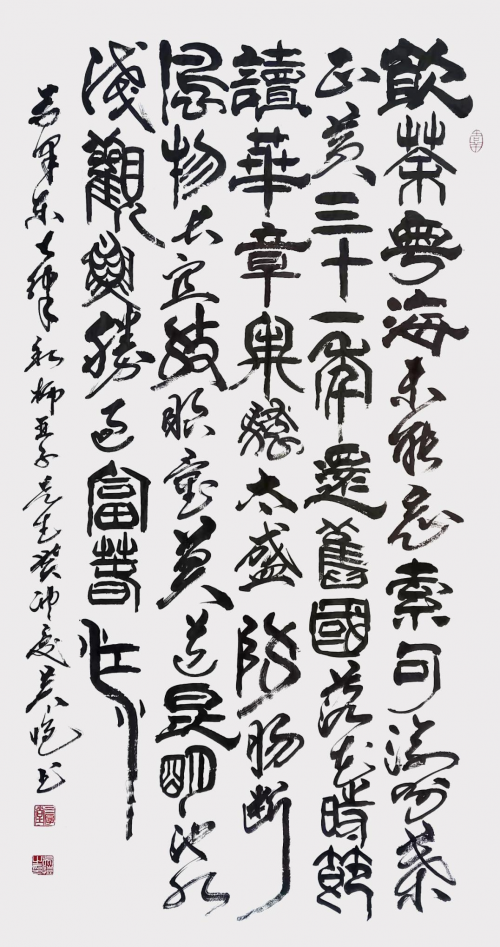 飲茶粵海未能忘索句渝州葉
正黄三十一年還舊國落花時節
讀華章牢騷太盛防腸斷
風物長宜放眼量莫道昆明池水
淺觀魚勝過富春江
澤東七律和柳亞子先生癸卯夏吴書